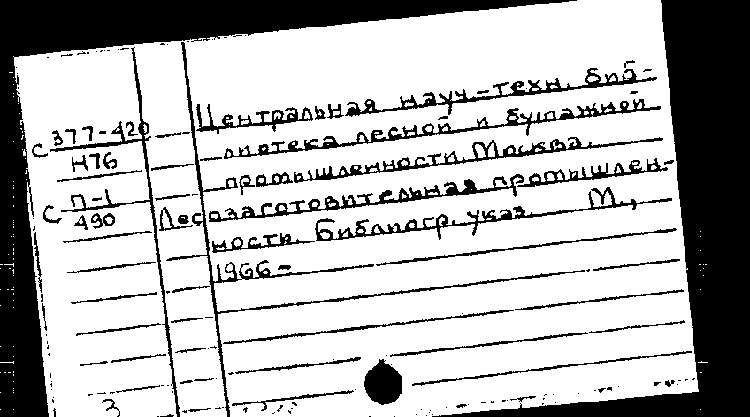 Центральная науч.-техн. биб-
С 377-420
лиотека лесной и бумажной
Н76
промышленности. Москва.
С П-1
490
Лесозаготовительная промышлен-
ности. Библиогр. указ. М.,
1966-
3